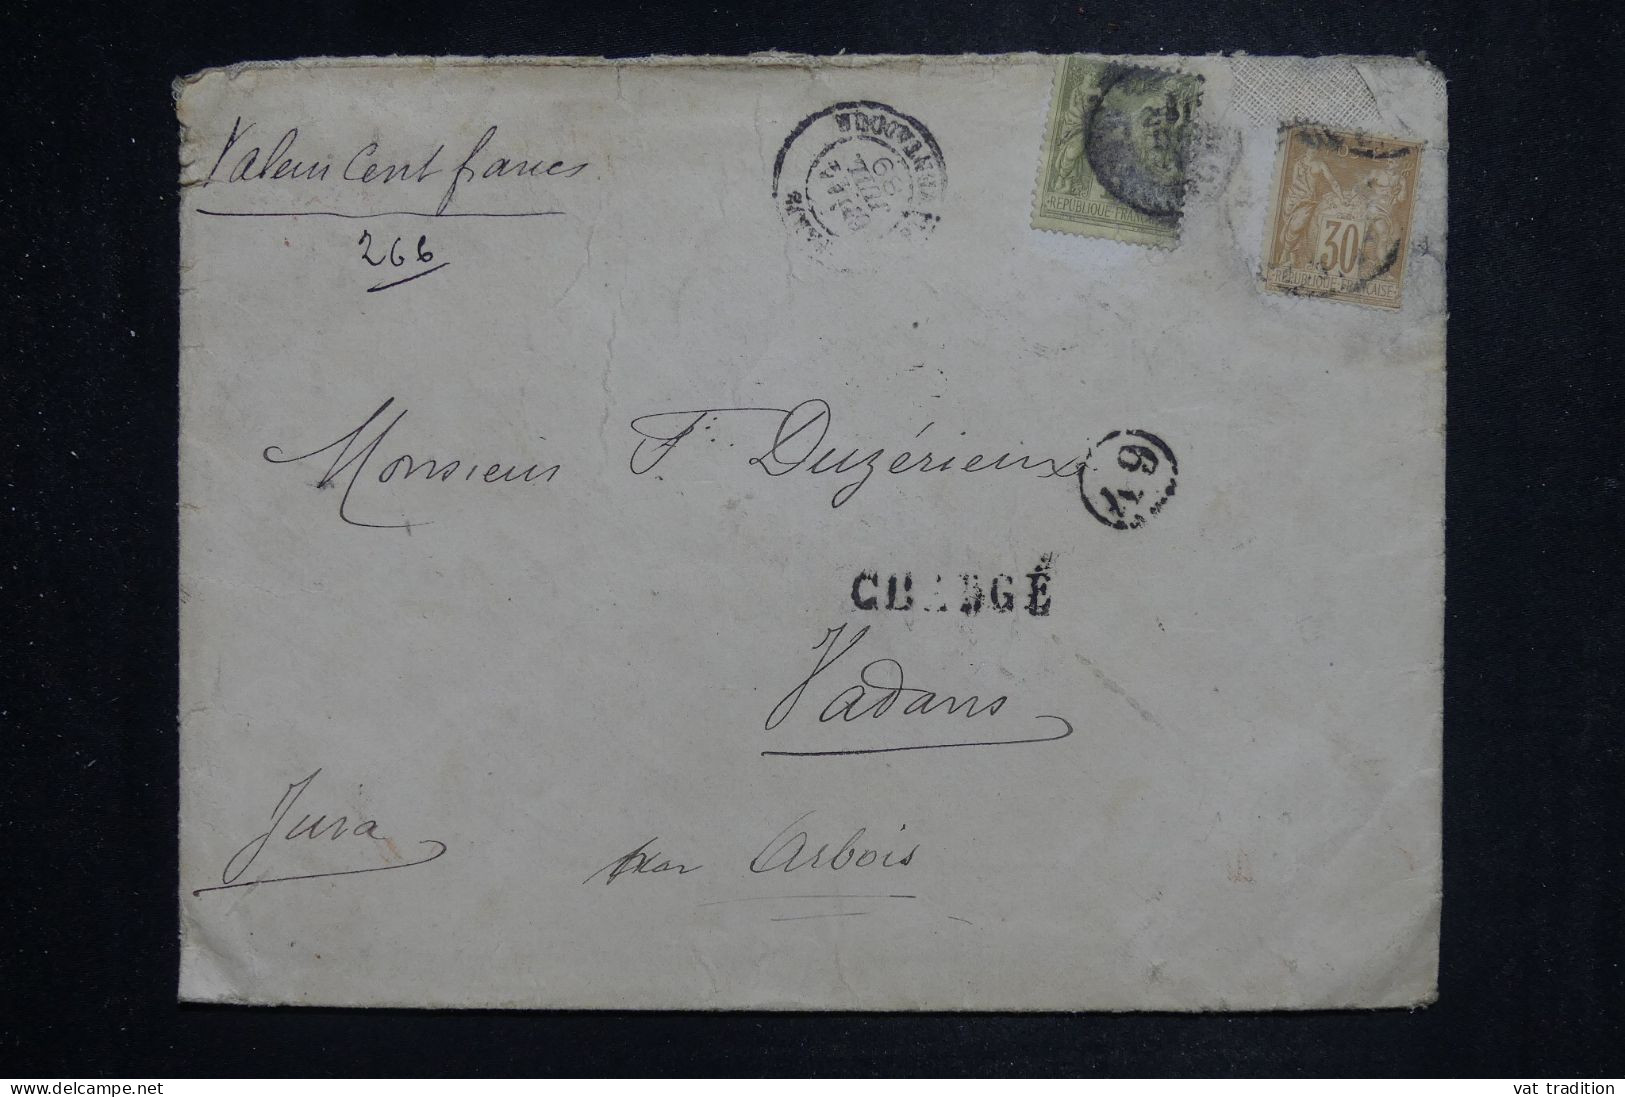 Valeur Cent francs
266
REPUBLIQUE FRANC
30
REPUBLIQUE FRANÇAISE
Monsieur F. Duzérieux
CHARGÉ
Vadans
Jura
par Arbois
vat tradition
www.delcampe.net